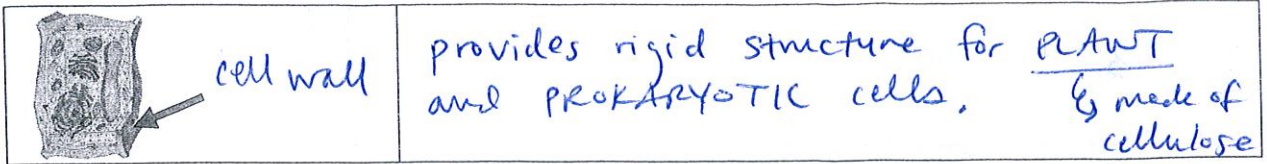 cell wall
provides rigid structure for PLANT
and PROKARYOTIC cells.
↳ made of
cellulose